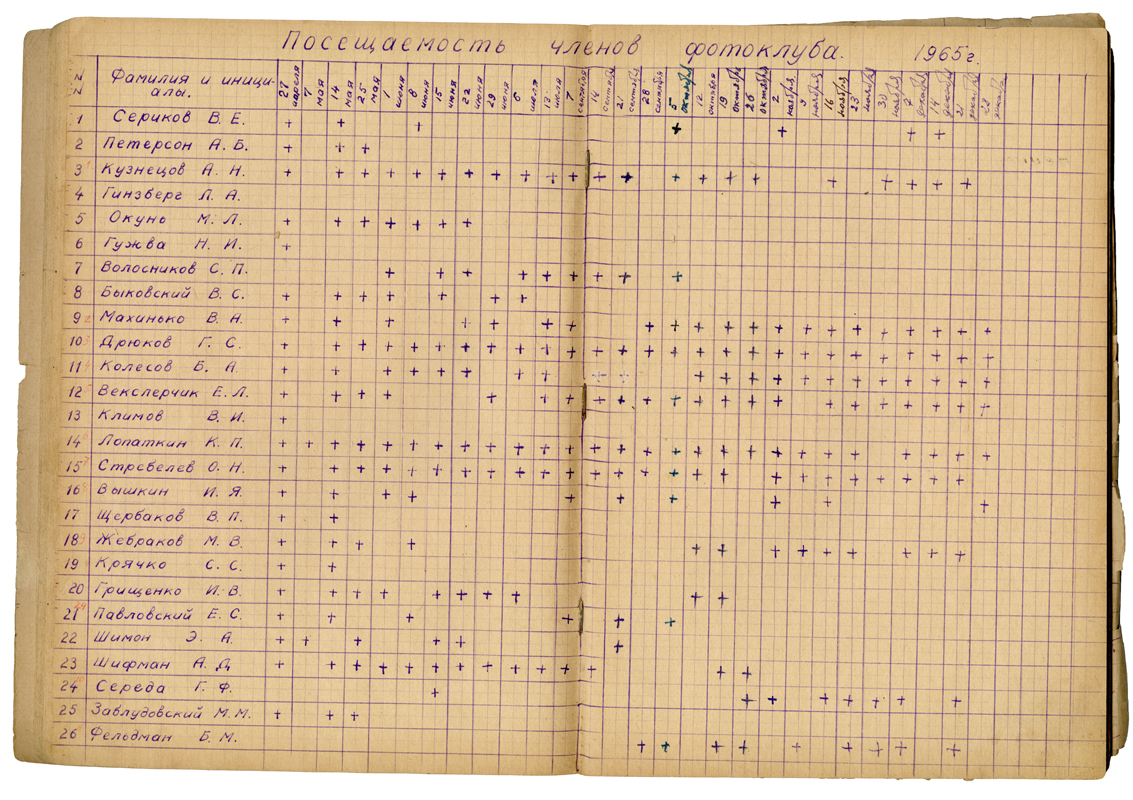 Посещаемость членов фотоклуба. 1965г.
N N Фамилия и иници-алы. 27 апреля 7 мая 14 мая 25 мая 1 июня 8 июня 15 июня 22 июня 29 июня 6 июля июля 7 сентября 14 сентября 21 сентября 28 сентября 5 октября 12 октября 19 октября 26 октября 2 ноября 9 ноября 16 ноября 23 ноября 30 ноября 7 декабря 14 декабря 21 декабря декабря
1 Сериков В. Е. + + + + + + +
2 Петерсон А. Б. + + +
3 Кузнецов А. Н. + + + + + + + + + + + + + + + + + + + + + +
4 Гинзберг Л. А.
5 Окунь М. Л. + + + + + + +
6 Гужва Н. И. +
7 Волосников С. П. + + + + + + + + +
8 Быковский В. С. + + + + + + +
9 Махинько В. А. + + + + + + + + + + + + + + + + + + + + +
10 Дрюков Г. С. + + + + + + + + + + + + + + + + + + + + + + + + + + +
11 Колесов Б. А + + + + + + + + + + + + + + + + + + + + +
12 Векслерчик Е. Л. + + + + + + + + + + + + + + + + + + + + + +
13 Климов В. И. +
14 Лопаткин К. П. + + + + + + + + + + + + + + + + + + + + + + + + + + +
15 Стребелев О. Н. + + + + + + + + + + + + + + + + + + + + + + + + +
16 Вышкин И. Я. + + + + + + + + + +
17 Щербаков В. П. + +
18 Жебраков М. В. + + + + + + + + + + + + +
19 Крячко С. С. + +
20 Грищенко И. В. + + + + + + + + + +
21 Павловский Е. С. + + + + + +
22 Шимон Э. А. + + + + + +
23 Шифман А. Д + + + + + + + + + + + + + +
24 Середа Г. Ф. + + + + + + + +
25 Заблудовский М. М. + + +
26 Фельдман Б. М. + + + + + + + + +